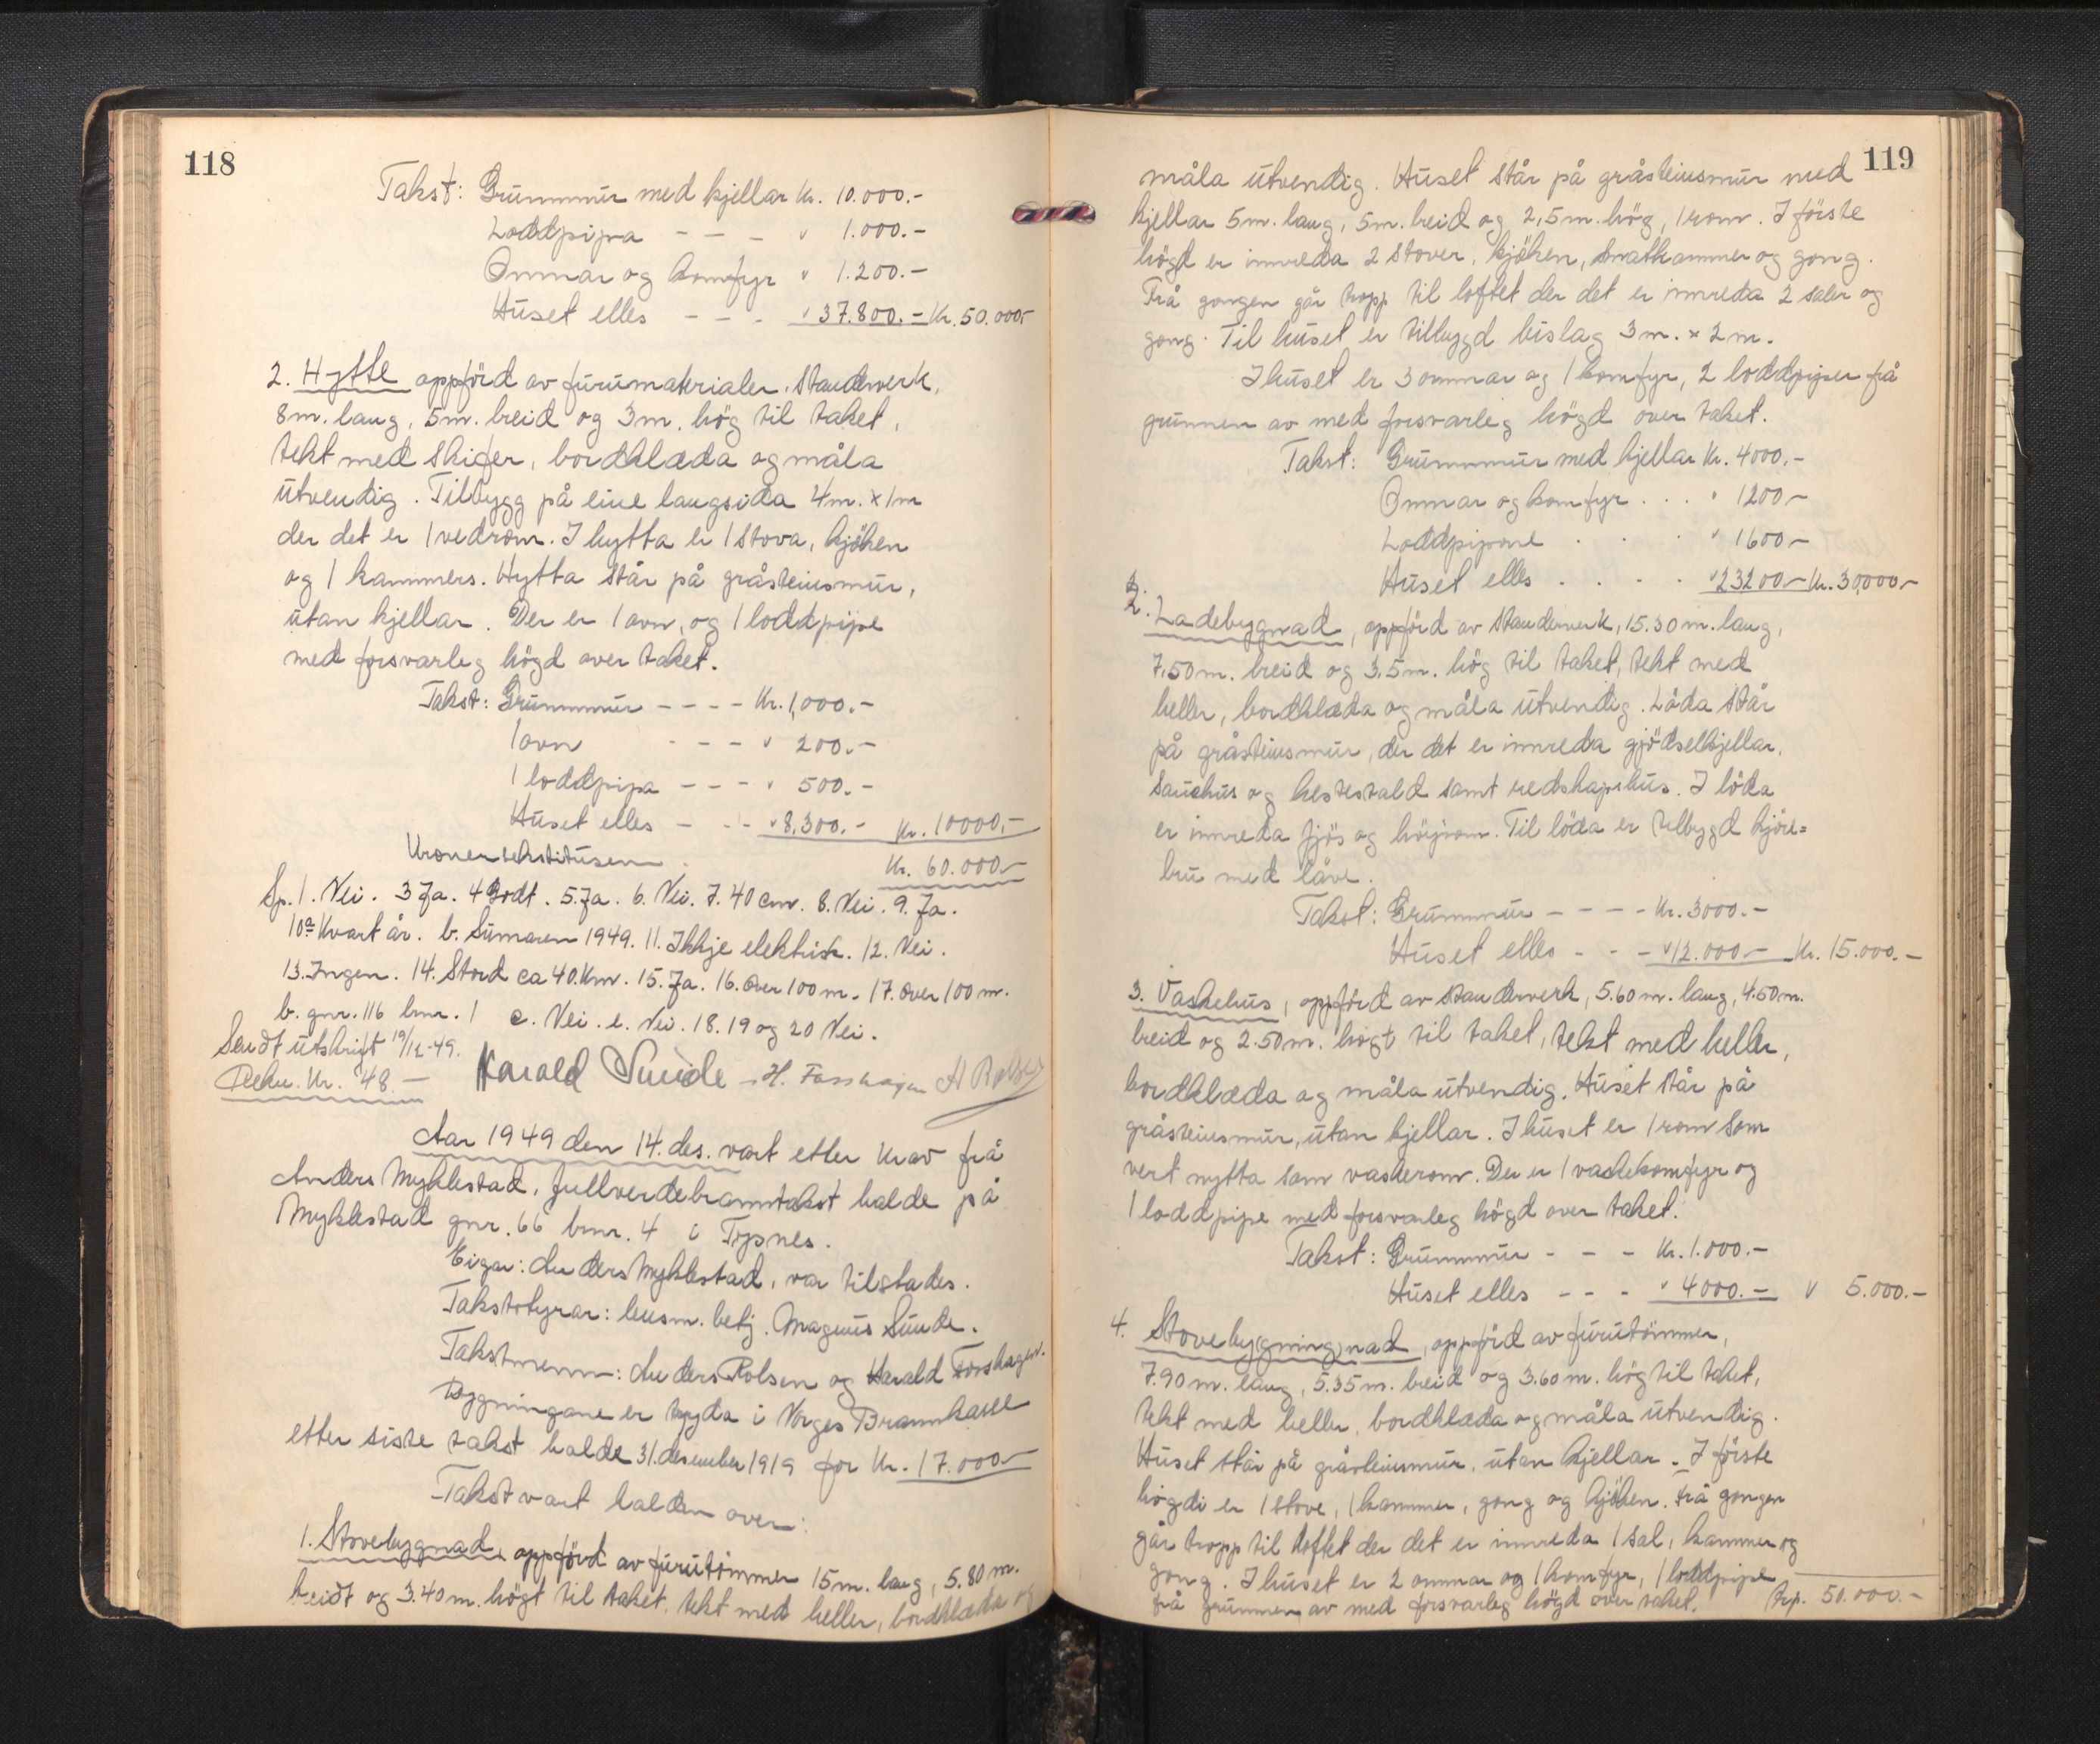 118
Takst: Grunnmur med kjellar Kr. 10.000.-
Loddpipa - - - " 1.000.-
Omnar og komfyr " 1.200.-
Huset elles - - - " 37.800.- Kr. 50.000.-
2. Hytte oppförd av furumaterialer, standerverk,
8 m. lang, 5 m. breid og 3 m. hög til taket,
tekt med skifer, bordklæda og måla
utvendig. Tilbygg på eine langsida 4 m. x 1 m
der det er 1 vedrom. I hytta er 1 stova, kjöken
og 1 kammers. Hytta står på gråsteinsmur,
utan kjellar. Der er 1 ovn, og 1 loddpipe
med forsvarleg högd over taket.
Takst: Grunnmur - - - - Kr. 1,000.-
1 ovn - - - " 200.-
1 loddpipa - - - " 500.-
Huset elles - - - " 8,300.- Kr. 10000,-
Kr. 60.000.-
Sp. 1. Nei. 3 Ja. 4 Godt. 5. Ja. 6. Nei. 7. 40 cm. 8. Nei. 9. Ja.
10a Kvart år. b. Sumaren 1949. 11. Ikkje elektrisk. 12. Nei.
13. Ingen. 14. Stord ca 40 Km. 15. Ja. 16. Over 100 m. 17. Over 100 m.
b. gnr. 116 bnr. 1 c. Nei. e. Nei. 18. 19 og 20 Nei.
Sendt utskrift 19/12-49.
Rekn. Kr. 48.- Harald Sunde H. Forshagen A Rolsen
Aar 1949 den 14. des. vart etter krav frå
Anders Myklestad, fullverdebranntakst halde på
Myklestad gnr. 66 bnr. 4 i Tysnes.
Eigar: Anders Myklestad, var tilstades.
Takststyrar: lensm. betj. Magnus Sunde.
Takstmenn: Anders Rolsen og Harald Forshagen.
Bygningane er trygda i Norges Brannkasse
etter siste takst halde 31. desember 1919 for Kr. 17.000.-
Takst vart halden over:
1. Stovebygnad, oppförd av furutömmer 15 m. lang, 5.80 m.
breidt og 3.40 m. högt til taket, tekt med heller, bordklæda og
119
måla utvendig. Huset står på gråsteinsmur med
kjellar 5 m. lang, 5 m. breid og 2,5 m. hög, 1 rom. I förste
högd er innreda 2 stover, kjöken, matkammer og gong.
Frå gongen går tropp til loftet der det er innreda 2 saler og
gong. Til huset er tilbygd bislag 3 m. x 2 m.
I huset er 3 omnar og 1 komfyr, 2 loddpiper frå
grunnen av med forsvarleg högd over taket.
Takst: Grunnmur med kjellar Kr. 4000.-
Omnar og komfyr . . . " 1200-
Loddpipone . . . " 1600-
Huset elles . . . . " 23200.- Kr. 30,000.-
2. Ladebygnad, oppförd av standerverk, 15.30 m. lang,
7,50 m. breid og 3,5 m. hög til taket, tekt med
heller, bordklæda og måla utvendig. Löda står
på gråsteinsmur, der det er innreda gjödselkjellar,
sauehus og hestestald samt redskapshus. I löda
er innreda fjös og höyrom. Til löda er tilbygd kjöre-
bru med låve.
Takst: Grunnmur - - - - Kr. 3000.-
Huset elles - - - " 12.000.- Kr. 15.000.-
3. Vaskehus, oppförd av standerverk, 5.60 m. lang, 4.50 m.
breid og 2.50 m. högt til taket, tekt med heller,
bordklæda og måla utvendig. Huset står på
gråsteinsmur, utan kjellar. I huset er 1 rom som
vert nytta som vaskerom. Der er 1 vaskekomfyr og
1 loddpipe med forsvarleg högd over taket.
Takst: Grunnmur - - - Kr. 1.000.-
Huset elles - - - " 4000.- " 5.000.-
4. Stovebygningnad, oppförd av furutömmer,
7.90 m. lang, 5.35 m. breid og 3.60 m. hög til taket,
tekt med heller, bordklæda og måla utvendig.
Huset står på gråsteinsmur, utan kjellar. I förste
högdi er 1 stove, 1 kammer, gong og kjöken. Frå gongen
går tropp til loftet der det er innreda 1 sal, kammer og
gong. I huset er 2 omnar og 1 komfyr, 1 loddpipe
frå grunnen av med forsvarleg högd over taket. Trp. 50.000.-